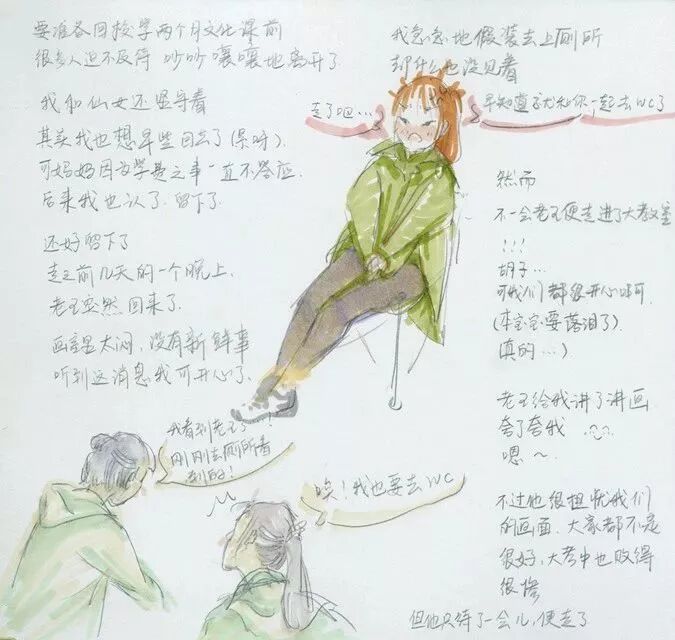 要准备回校学两个月文化课前
很多人迫不及待 吵吵嚷嚷地离开了
我和仙女还坚守着
其实我也想早些回去了(是呀)
可妈妈因为学费之事一直不答应.
后来我也认了.留下了.
还好留下了
走之前几天的一个晚上.
老王突然回来了.
画室太闷.没有新鲜事
听到这消息我可开心了.
我看到老王了...!
刚刚去厕所看
到的!
唉!我也要去WC
我急急地假装去上厕所
却什么也没见着
走了吧...
早知道就和你一起去WC了
然而
不一会老王便走进了大教室
!!!
胡子...
可我们都很开心呀可.
(本宝宝要落泪了)
(真的...)
老王给我讲了讲画
夸了夸我
嗯~
不过他很担忧我们
的画面.大家都不是
很好,大考中也败得
很惨
但他只待了一会儿,便走了